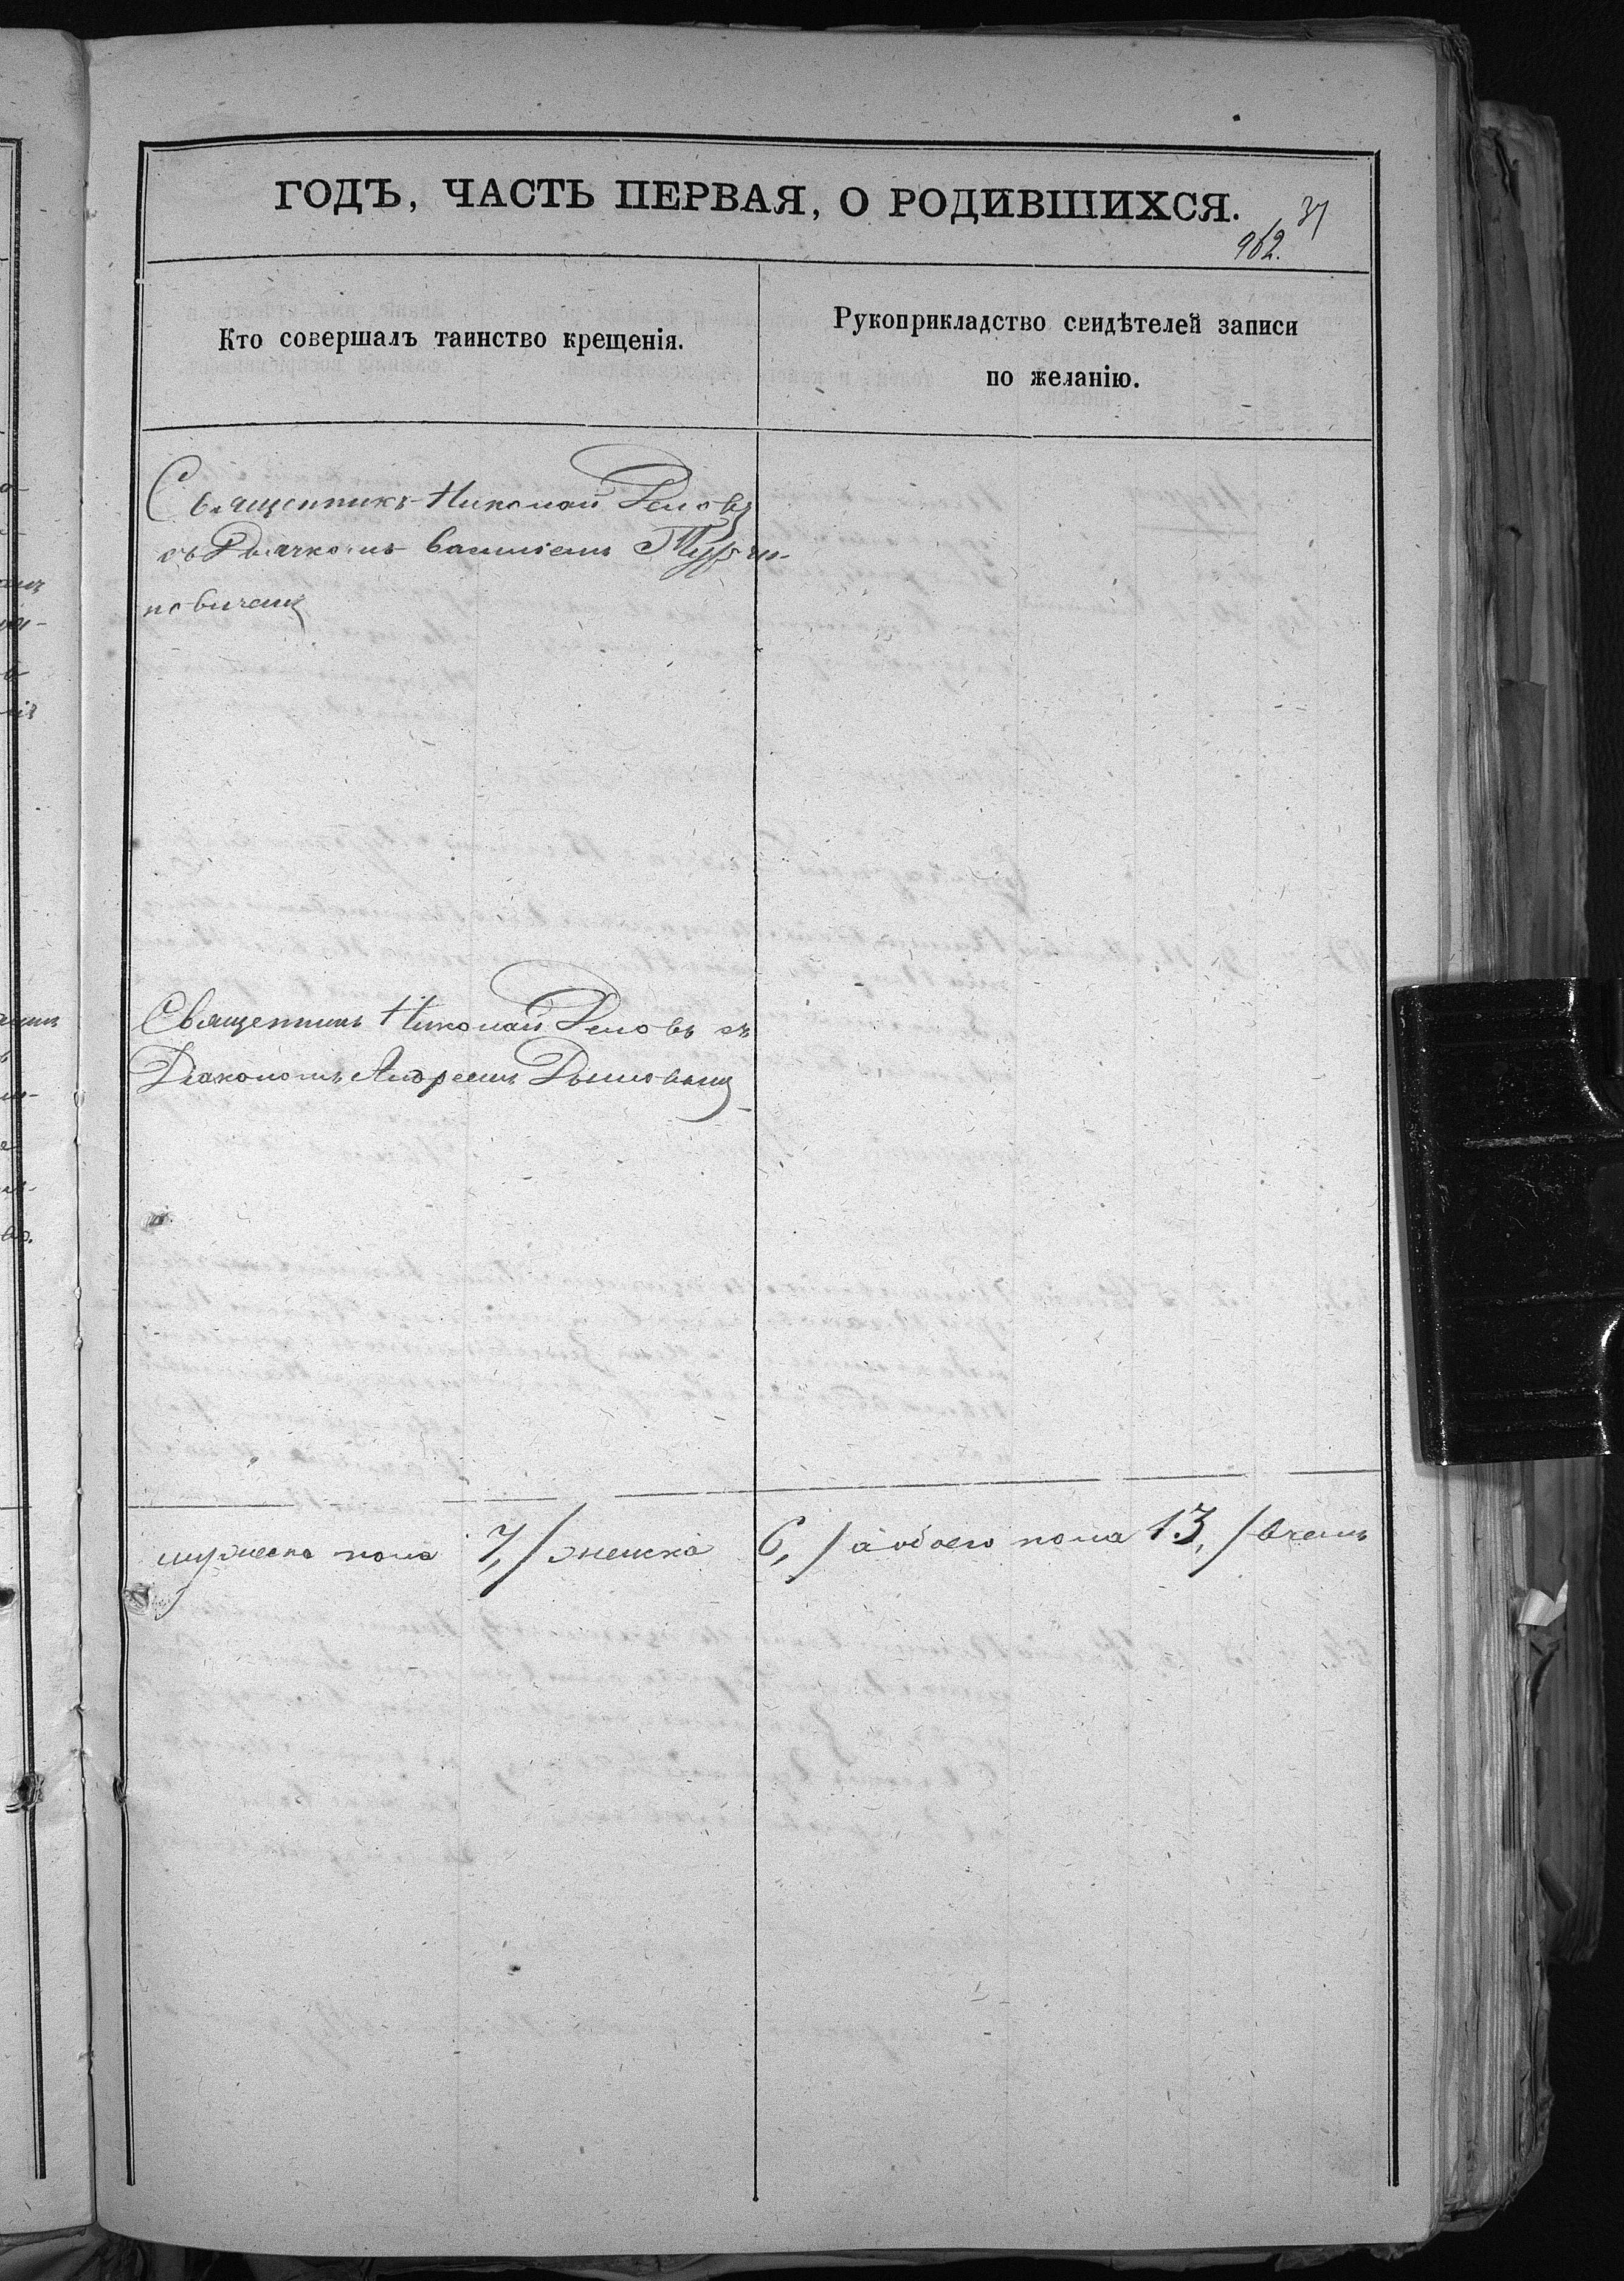 ГОДЪ, ЧАСТЬ ПЕРВАЯ, О РОДИВШИХСЯ.
37
962.
Кто совершалъ таинство крещенія.
Рукоприкладство свидѣтелей записи
по желанію.
Священникъ Николай
съ Дьячкомъ Василіемъ
новичемъ
Священникъ Николай съ
Діакономъ Андреемъ
мужеска пола 7, / женска 6, / а обоего пола 13, / вчемъ